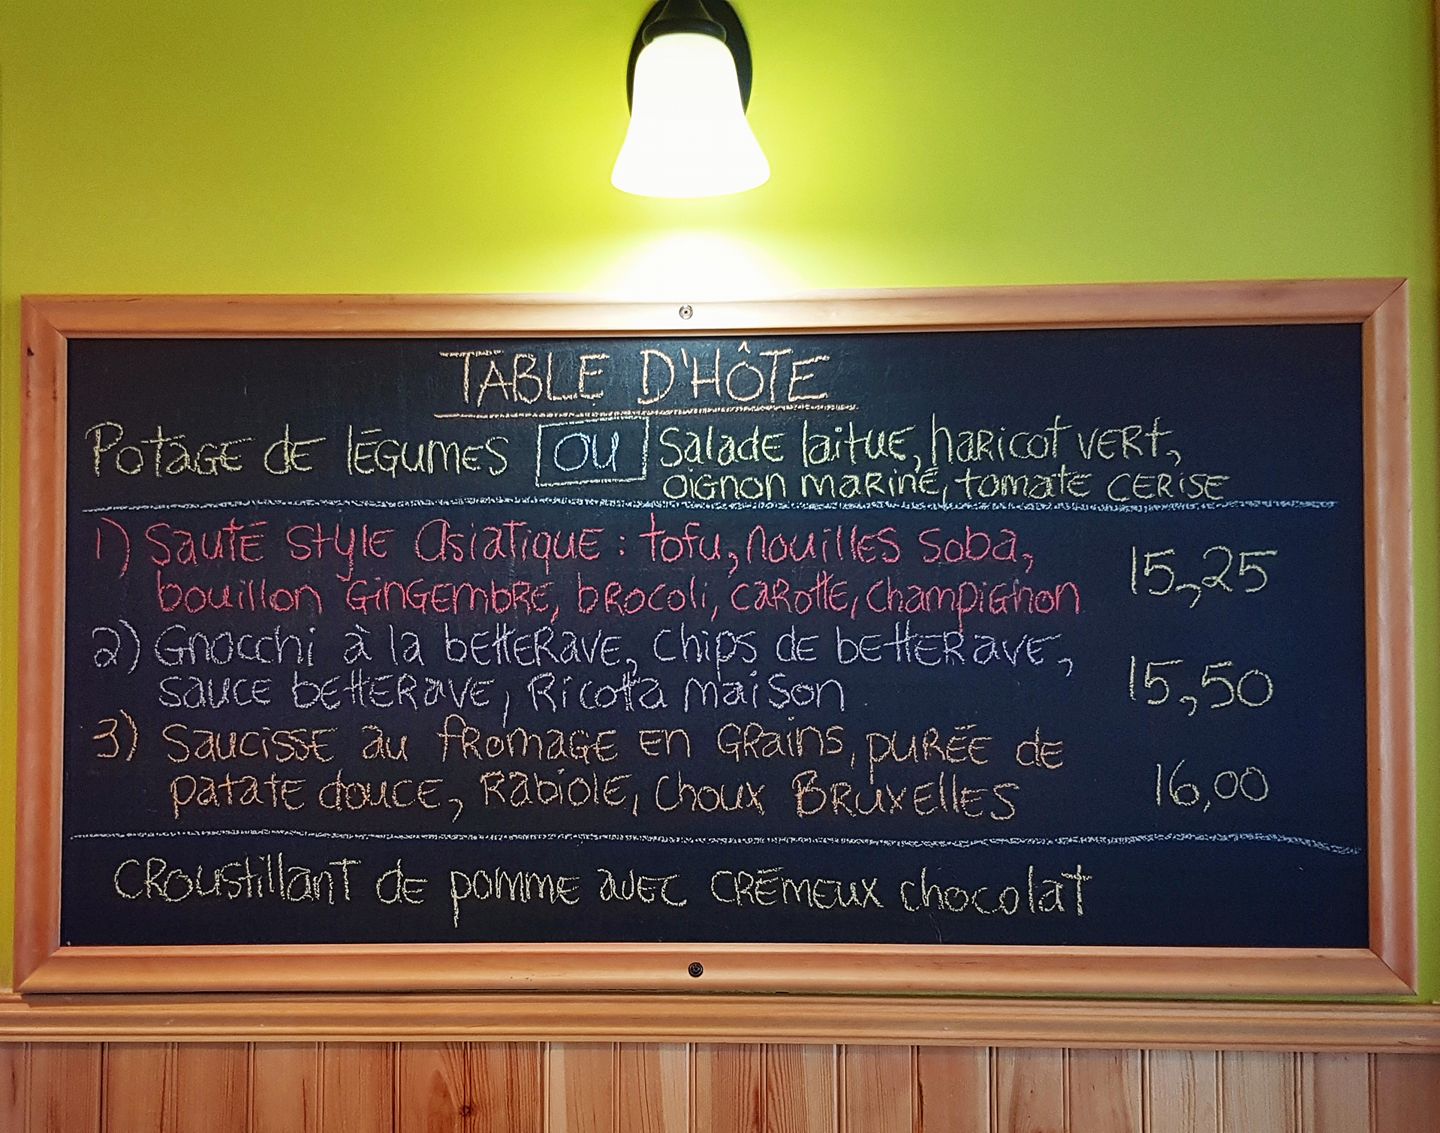 TABLE D'HÔTE
Potage de légumes OU Salade laitue, haricot vert,
oignon mariné, tomate cerise
1) Sauté style asiatique : tofu, nouilles soba,
bouillon gingembre, brocoli, carotte, champignon 15,25
2) Gnocchi à la betterave, chips de betterave,
sauce betterave, Ricotta maison 15,50
3) Saucisse au fromage en grains, purée de
patate douce, Rabiole, choux Bruxelles 16,00
Croustillant de pomme avec crémeux chocolat